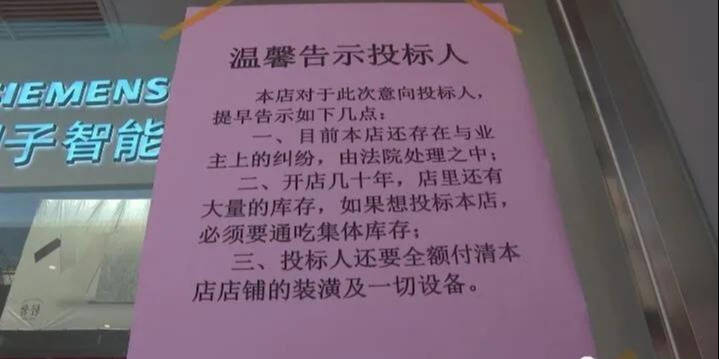 温馨告示投标人
本店对于此次意向投标人，
提早告示如下几点：
一、目前本店还存在与业
主上的纠纷，由法院处理之中；
二、开店几十年，店里还有
大量的库存，如果想投标本店，
必须要通吃集体库存；
三、投标人还要全额付清本
店店铺的装潢及一切设备。
HEMENS
子智能